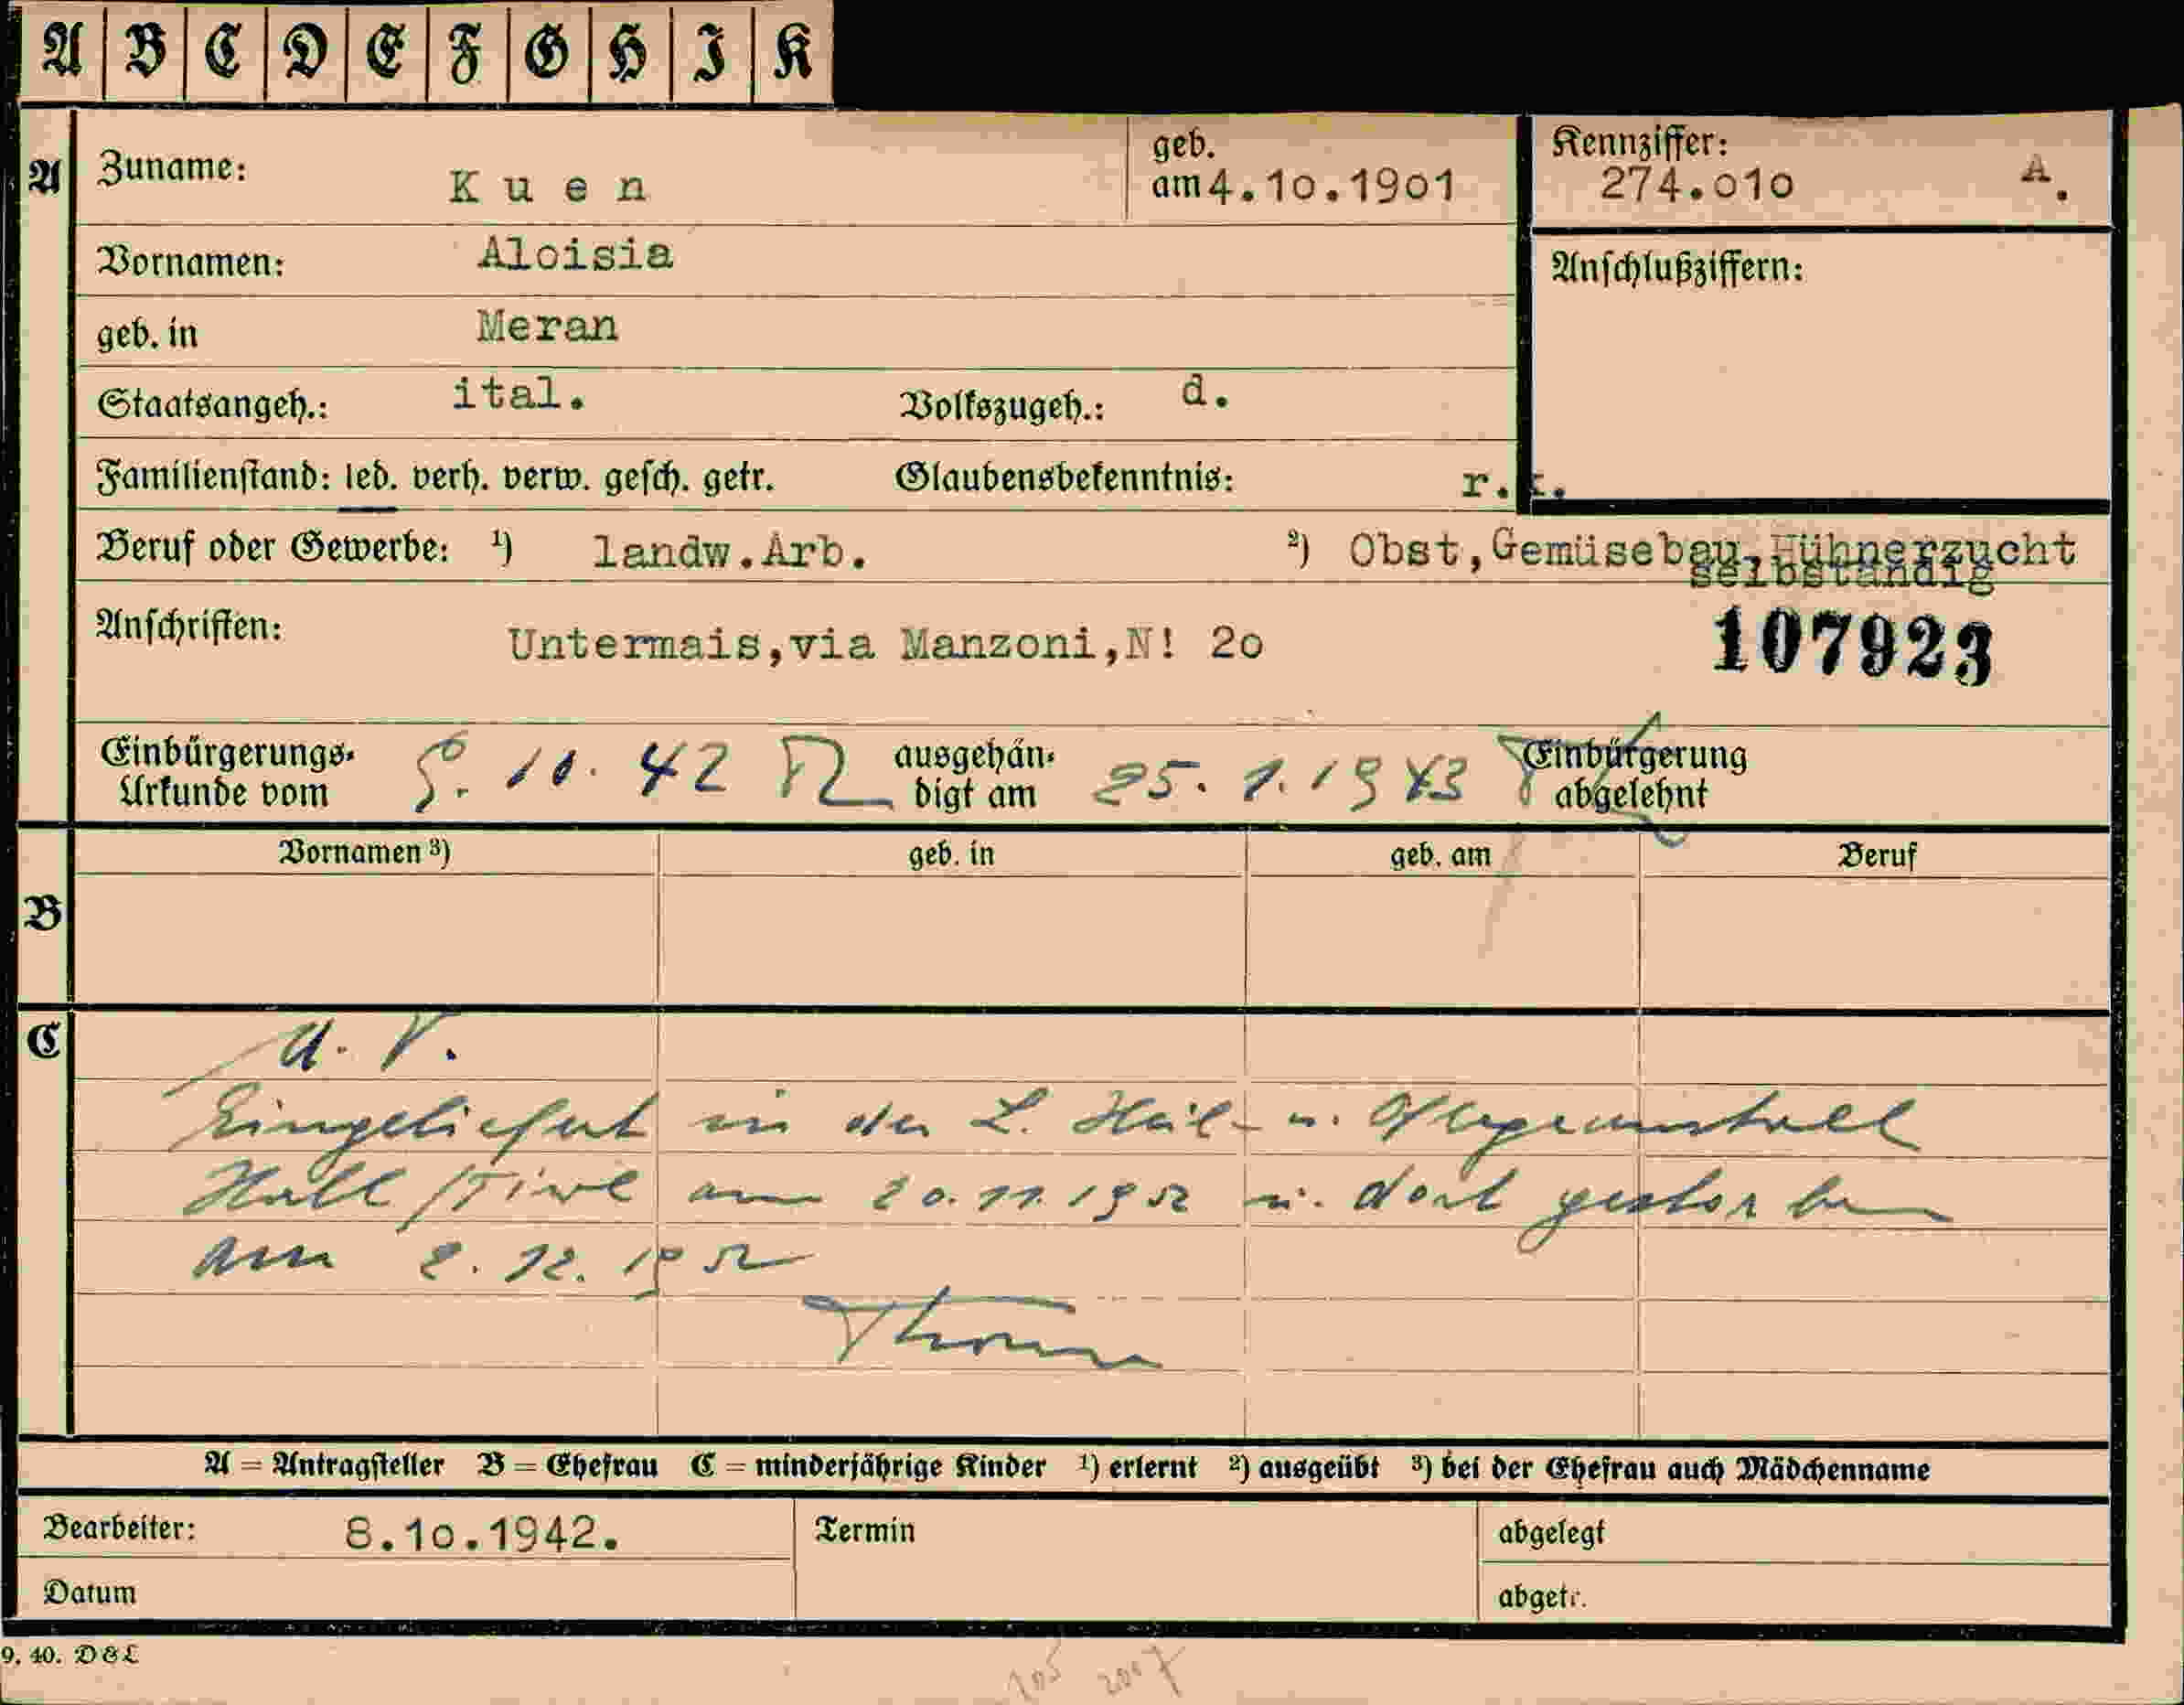 A B C D E F G H I K
A Zuname: Kuen geb. am 4.10.1901 Kennziffer: 274.010 A.
Vornamen: Aloisia Anschlußziffern:
geb. in Meran
Staatsangeh.: ital. Volkszugeh.: d.
Familienstand: led. verh. verw. gesch. getr. Glaubensbekenntnis: r.
Beruf oder Gewerbe: ¹) landw.Arb. ²) Obst,Gemüsebau,Hühnerzucht
selbständig
Anschriften: Untermais,via Manzoni,N! 20
107923
Einbürgerungs- Urkunde vom 11. 42 ausgehän- digt am 25. 1. 1943 Einbürgerung abgelehnt
Vornamen ³) geb. in geb. am Beruf
B
C U. V.
Eingeliefert in der L. Heil- u. Pflegeanstall
Hall /Tirol am 20.11.1952 u. dort gestorben
am 2.12.1952
A = Antragsteller B = Ehefrau C = minderjährige Kinder ¹) erlernt ²) ausgeübt ³) bei der Ehefrau auch Mädchenname
Bearbeiter: 8.10.1942. Termin abgelegt
Datum abgetr.
9. 40. D&L
105 2007